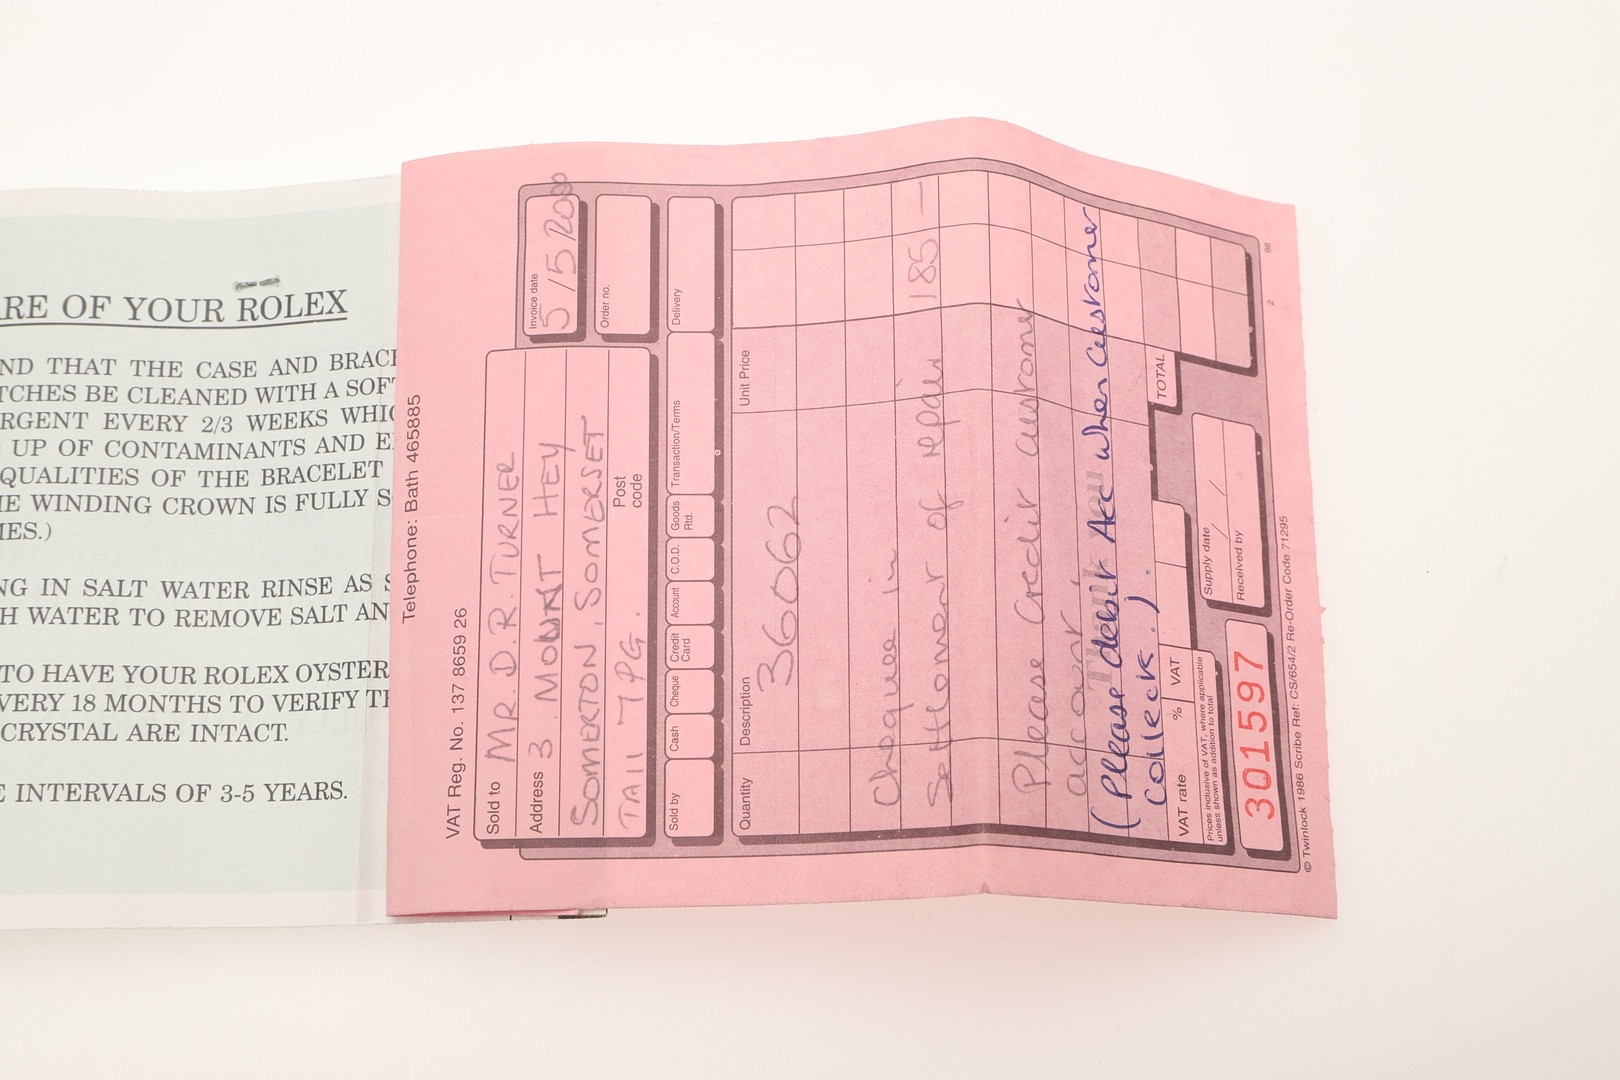 ARE OF YOUR ROLEX
ND THAT THE CASE AND BRACE
TCHES BE CLEANED WITH A SOFT
ERGENT EVERY 2/3 WEEKS WHIC
UP OF CONTAMINANTS AND E
QUALITIES OF THE BRACELET
HE WINDING CROWN IS FULLY S
MES.)
NG IN SALT WATER RINSE AS S
H WATER TO REMOVE SALT AN
TO HAVE YOUR ROLEX OYSTER
VERY 18 MONTHS TO VERIFY TH
CRYSTAL ARE INTACT.
E INTERVALS OF 3-5 YEARS.
Telephone: Bath 465885
VAT Reg. No. 137 8659 26
Invoice date
5/5/2000
Order no.
Sold to MR. D.R. TURNER
Address 3 MOUNT HEY
SOMERTON, SOMERSET
TA11 7PG.
Post code
Sold by Cash Cheque Credit Card Account C.O.D. Goods Rtd. Transaction/Terms Delivery
Quantity Description Unit Price
36062
Cheque in
Settlement of repair 185 —
Please Credit customer
account
Thank you
(Please debit Acc when Customer
Collects.)
TOTAL
VAT rate % VAT
Prices inclusive of VAT, where applicable
unless shown as addition to total
Supply date / /
Received by
301597
© Twinlock 1986 Scribe Ref: CS/654/2 Re-Order Code 71295
2 98